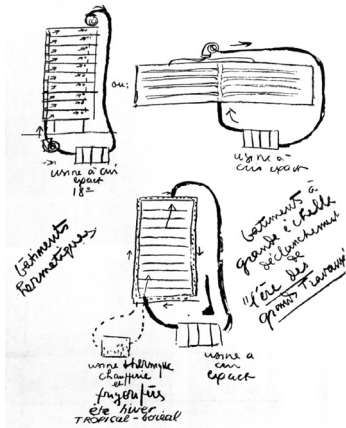 ou:
usine à
air
exact
18°
usine à
air exact
bâtiments
hermétiques
bâtiments à
grande échelle
déclanchement
de
"l'ère des
grands travaux"
usine thermique
chaufferie
et
frigorifies
été hiver
TROPICAL - boréal
usine a
air
exact